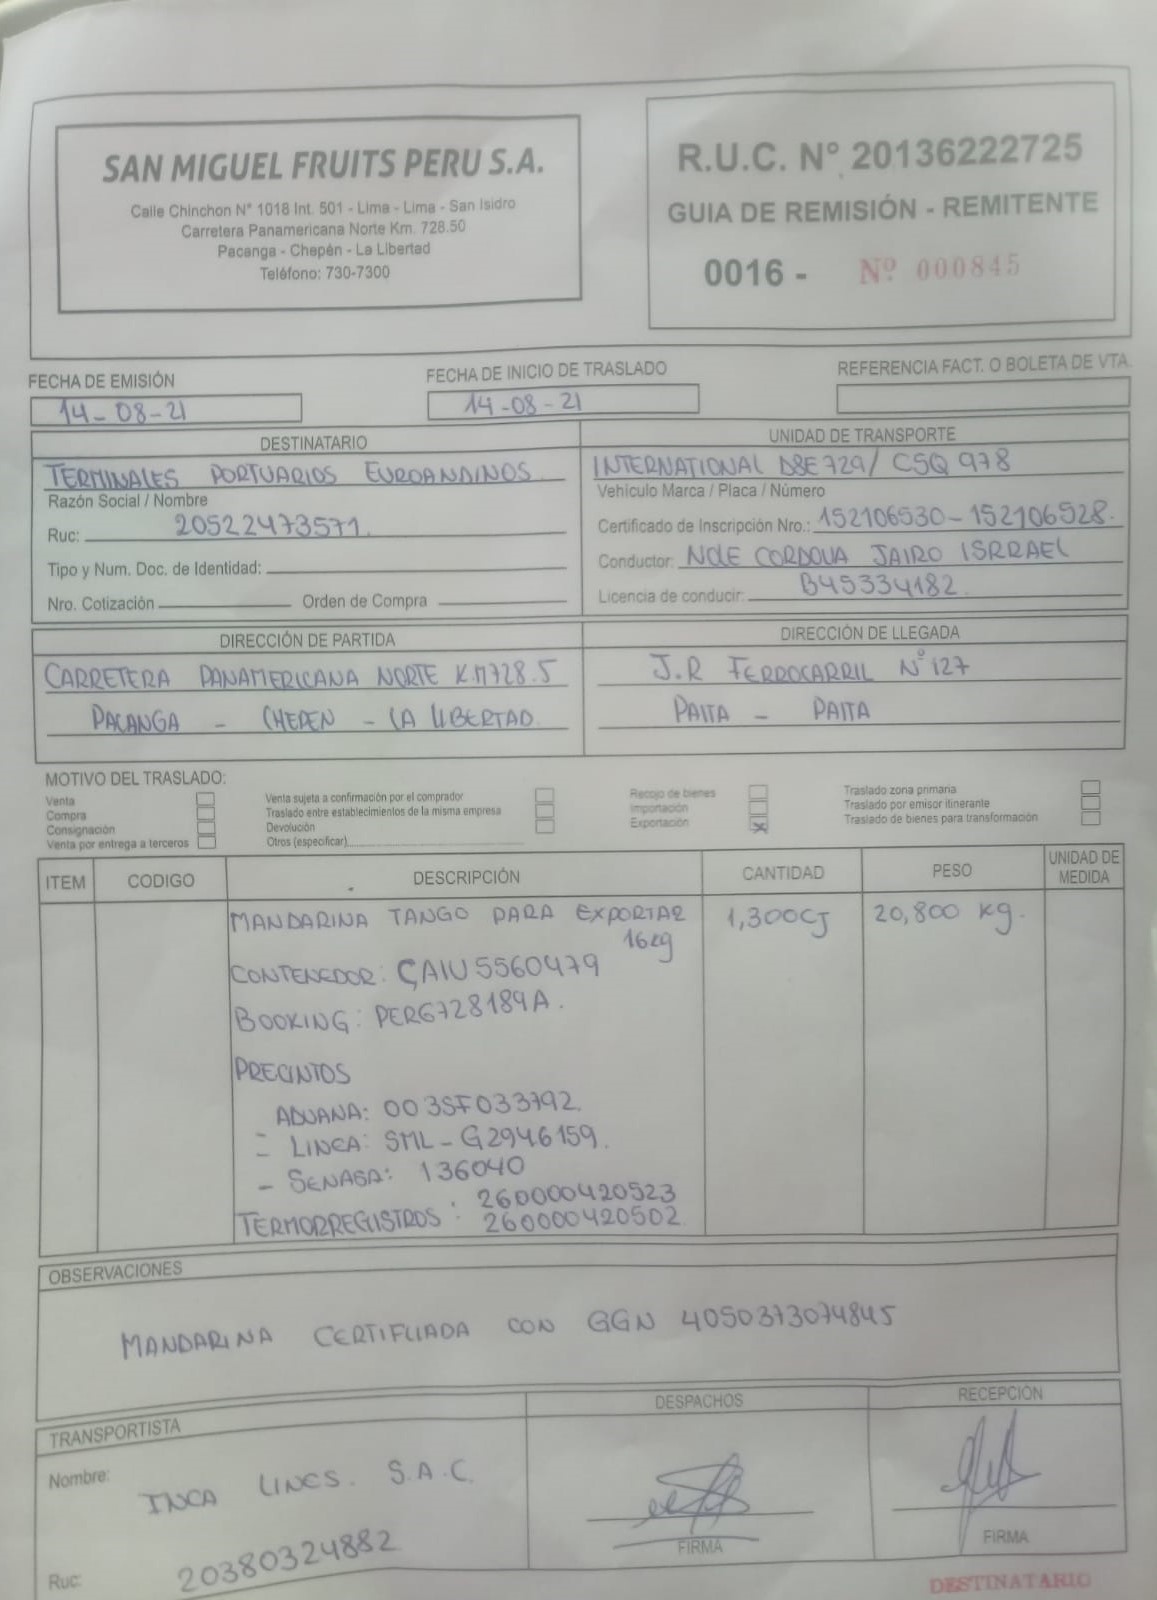 SAN MIGUEL FRUITS PERU S.A.
Calle Chinchon N° 1018 Int. 501 - Lima - Lima - San Isidro
Carretera Panamericana Norte Km. 728.50
Pacanga - Chepén - La Libertad
Teléfono: 730-7300
R.U.C. N° 20136222725
GUIA DE REMISIÓN - REMITENTE
0016 - Nº 000845
FECHA DE EMISIÓN
14-08-21
FECHA DE INICIO DE TRASLADO
14-08-21
REFERENCIA FACT. O BOLETA DE VTA.
DESTINATARIO
TERMINALES PORTUARIOS EUROANDINOS
Razón Social / Nombre
Ruc: 20522473571.
Tipo y Num. Doc. de Identidad:
Nro. Cotización Orden de Compra
UNIDAD DE TRANSPORTE
INTERNATIONAL D8E729/ CSQ 978
Vehículo Marca / Placa / Número
Certificado de Inscripción Nro.: 152106530-152106528.
Conductor: NOLE CORDOVA JAIRO ISRRAEL
Licencia de conducir: B45334182.
DIRECCIÓN DE PARTIDA
CARRETERA PANAMERICANA NORTE K.M728.5
PACANGA - CHEPEN - LA LIBERTAD.
DIRECCIÓN DE LLEGADA
J.R FERROCARRIL N°127
PAITA - PAITA
MOTIVO DEL TRASLADO:
Venta
Compra
Consignación
Venta por entrega a terceros
Venta sujeta a confirmación por el comprador
Traslado entre establecimientos de la misma empresa
Devolución
Otros (especificar)
Recojo de bienes
Importación
Exportación X
Traslado zona primaria
Traslado por emisor itinerante
Traslado de bienes para transformación
ITEM CODIGO DESCRIPCIÓN CANTIDAD PESO UNIDAD DE MEDIDA
MANDARINA TANGO PARA EXPORTAR 1,300CJ 20,800 Kg.
16kg
CONTENEDOR: CAIU5560479
BOOKING: PER6728189A.
PRECINTOS
ADUANA: 003SF033792.
- LINEA: SML-G2946159.
- SENASA: 136040
TERMORREGISTROS: 260000420523
260000420502
OBSERVACIONES
MANDARINA CERTIFLIADA CON GGN 4050373074845
TRANSPORTISTA
Nombre: INCA LINES. S.A.C.
Ruc: 20380324882
DESPACHOS
FIRMA
RECEPCIÓN
FIRMA
DESTINATARIO